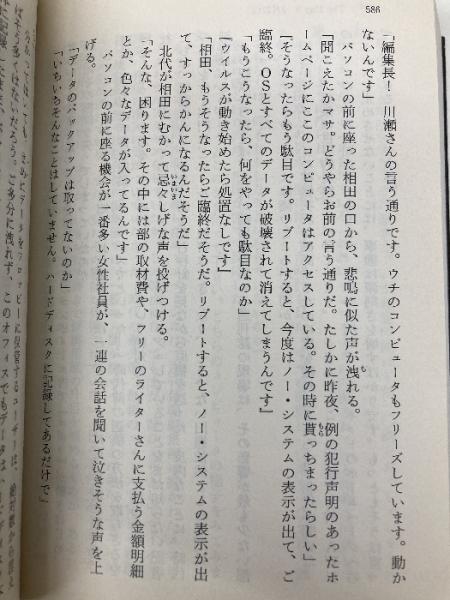 586
「編集長！　川瀬さんの言う通りです。ウチのコンピュータもフリーズしています。動か
ないんです」
パソコンの前に座った相田の口から、悲鳴に似た声が洩れる。
『聞こえたかマサ。どうやらお前の言う通りだ。たしかに昨夜、例の犯行声明のあったホ
ームページにここのコンピュータはアクセスしている。その時に貰っちまったらしい』
『そうなったらもう駄目です。リブートすると、今度はノー・システムの表示が出て、ご
臨終。ＯＳとすべてのデータが破壊されて消えてしまうんです』
『もうこうなったら、何をやっても駄目なのか』
『ウイルスが動き始めたら処置なしです』
「相田、もうそうなったらご臨終だそうだ。リブートすると、ノー・システムの表示が出
て、すっからかんになるんだそうだ」
北代が相田にむかって忌々しげな声を投げつける。
「そんな、困ります。その中には部の取材費や、フリーのライターさんに支払う金額明細
とか、色々なデータが入ってるんです」
パソコンの前に座る機会が一番多い女性社員が、一連の会話を聞いて泣きそうな声を上
げる。
「データのバックアップは取ってないのか」
「いちいちそんなことはしていません。ハードディスクに記録してあるだけで」